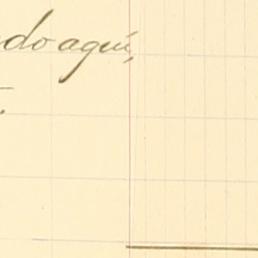 do aquí,